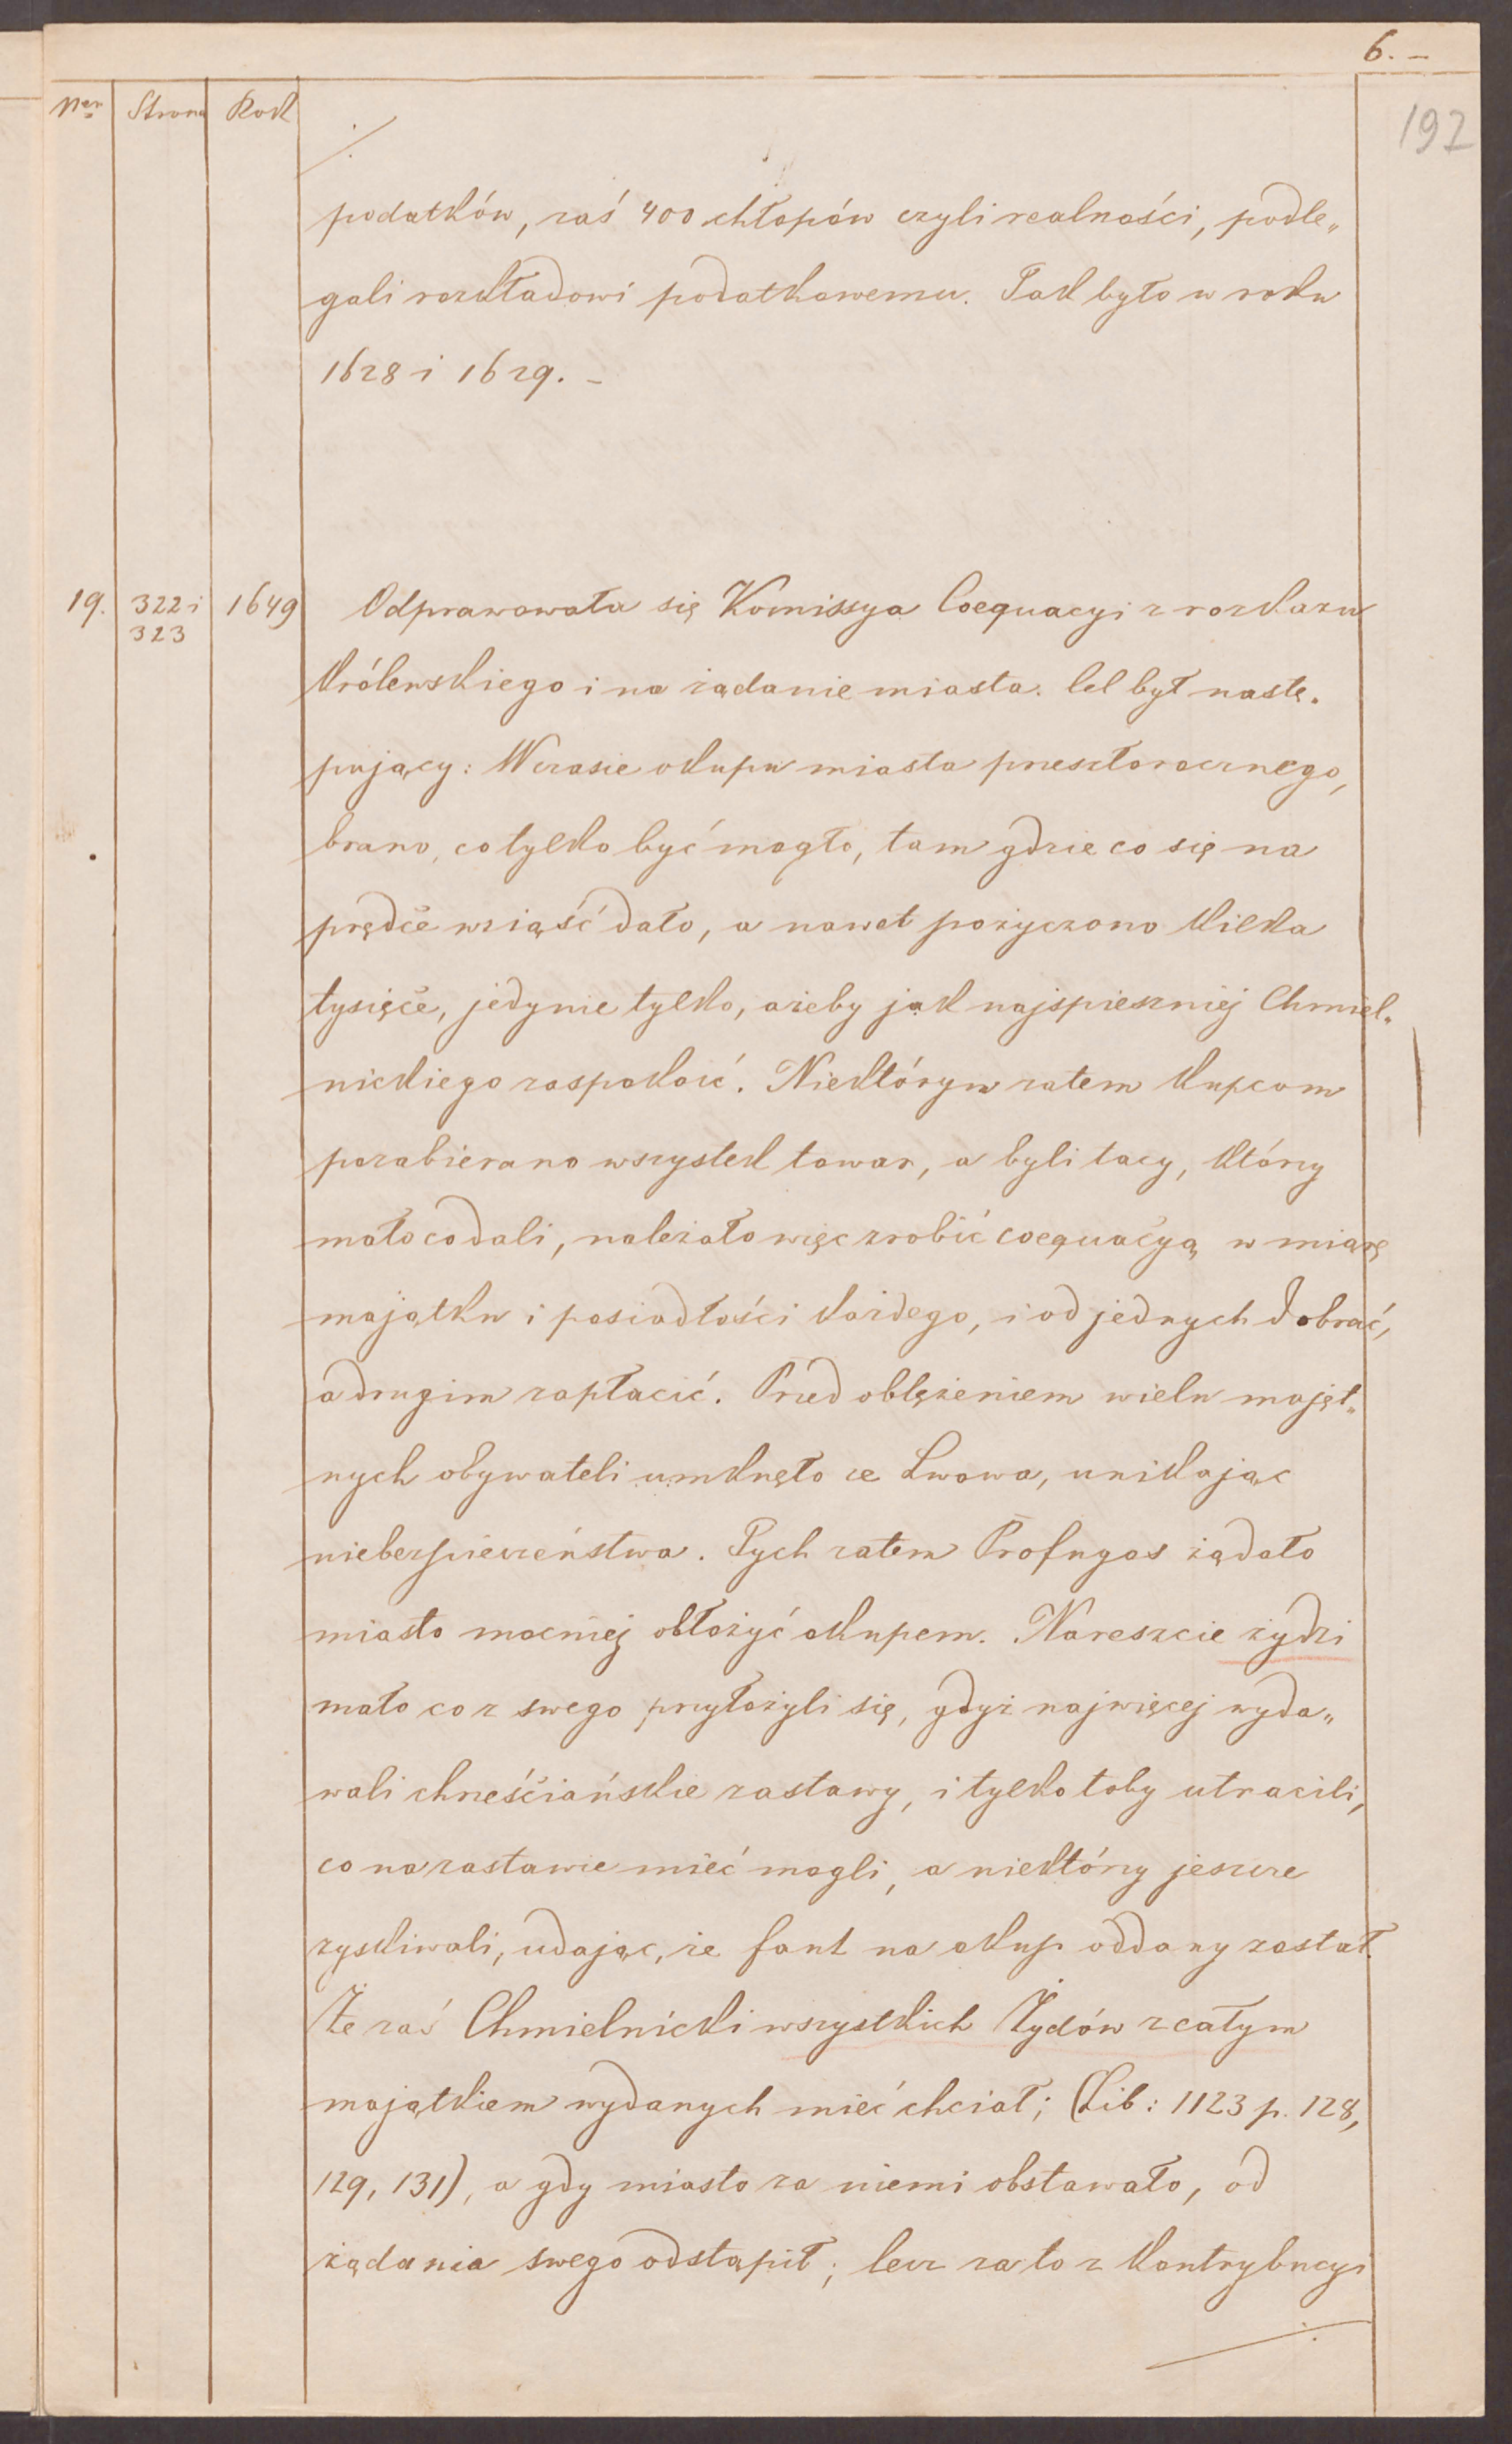 6. –
192
Ner Strona Rok
./.
podatków, zaś 400 chłopów czyli realności, podle„
gali rozkładowi podatkowemu. Tak było w roku
1628 i 1629. –
19. 322 i 1649 Odprawowała się Komissya Coequacyi z rozkazu
323
królewskiego i na żądanie miasta. Cel był nastę„
pujący: W czasie okupu miasta przeszłorocznego,
brano, co tylko być mogło, tam gdzie co się na
prędce wziąść dało, a nawet pożyczono kilka
tysięce, jedynie tylko, ażeby jak najspieszniej Chmiel„
nickiego zaspokoić. Niektórym zatem kupcom
pozabierano wszystek towar, a byli tacy, którzy
mało co dali, należało więc zrobić coequacyą w miarę
majątku i posiadłości każdego, i od jednych dobrać,
a drugim zapłacić. Przed oblężeniem wielu majęt„
nych obywateli umknęło ze Lwowa, unikając
niebezpieczeństwa. Tych zatem Profugos żądało
miasto mocniej obłożyć okupem. Nareszcie żydzi
mało co z swego przyłożyli się, gdyż najwięcej wyda„
wali chrześciańskie zastawy, i tylko toby utracili,
co na zastawie mieć mogli, a niektórzy jeszcze
zyskiwali, udając, że fant na okup oddany został.
Że zaś Chmielnicki wszystkich Żydów z całym
majątkiem wydanych mieć chciał; (Lib: 1123 p. 128,
129, 131), a gdy miasto za niemi obstawało, od
żądania swego odstąpił; lecz za to z kontrybucyi
./.